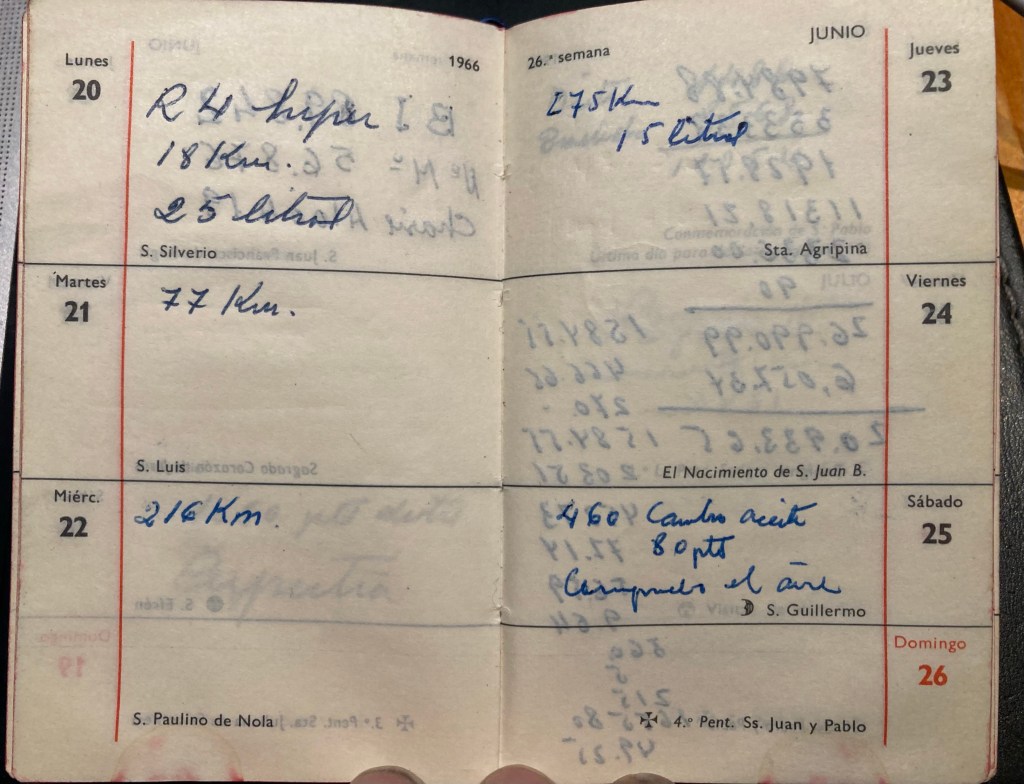 Lunes
20
1966
R 4 hiper
18 Km.
25 litros
S. Silverio
Martes
21
77 Km.
S. Luis
Miérc.
22
216 Km.
S. Paulino de Nola
26.ª semana
JUNIO
Jueves
23
275 Km
15 litros
Sta. Agripina
Viernes
24
El Nacimiento de S. Juan B.
Sábado
25
460 Cambio aceite
80 pts
Compruebo el aire
S. Guillermo
Domingo
26
4.º Pent. Ss. Juan y Pablo